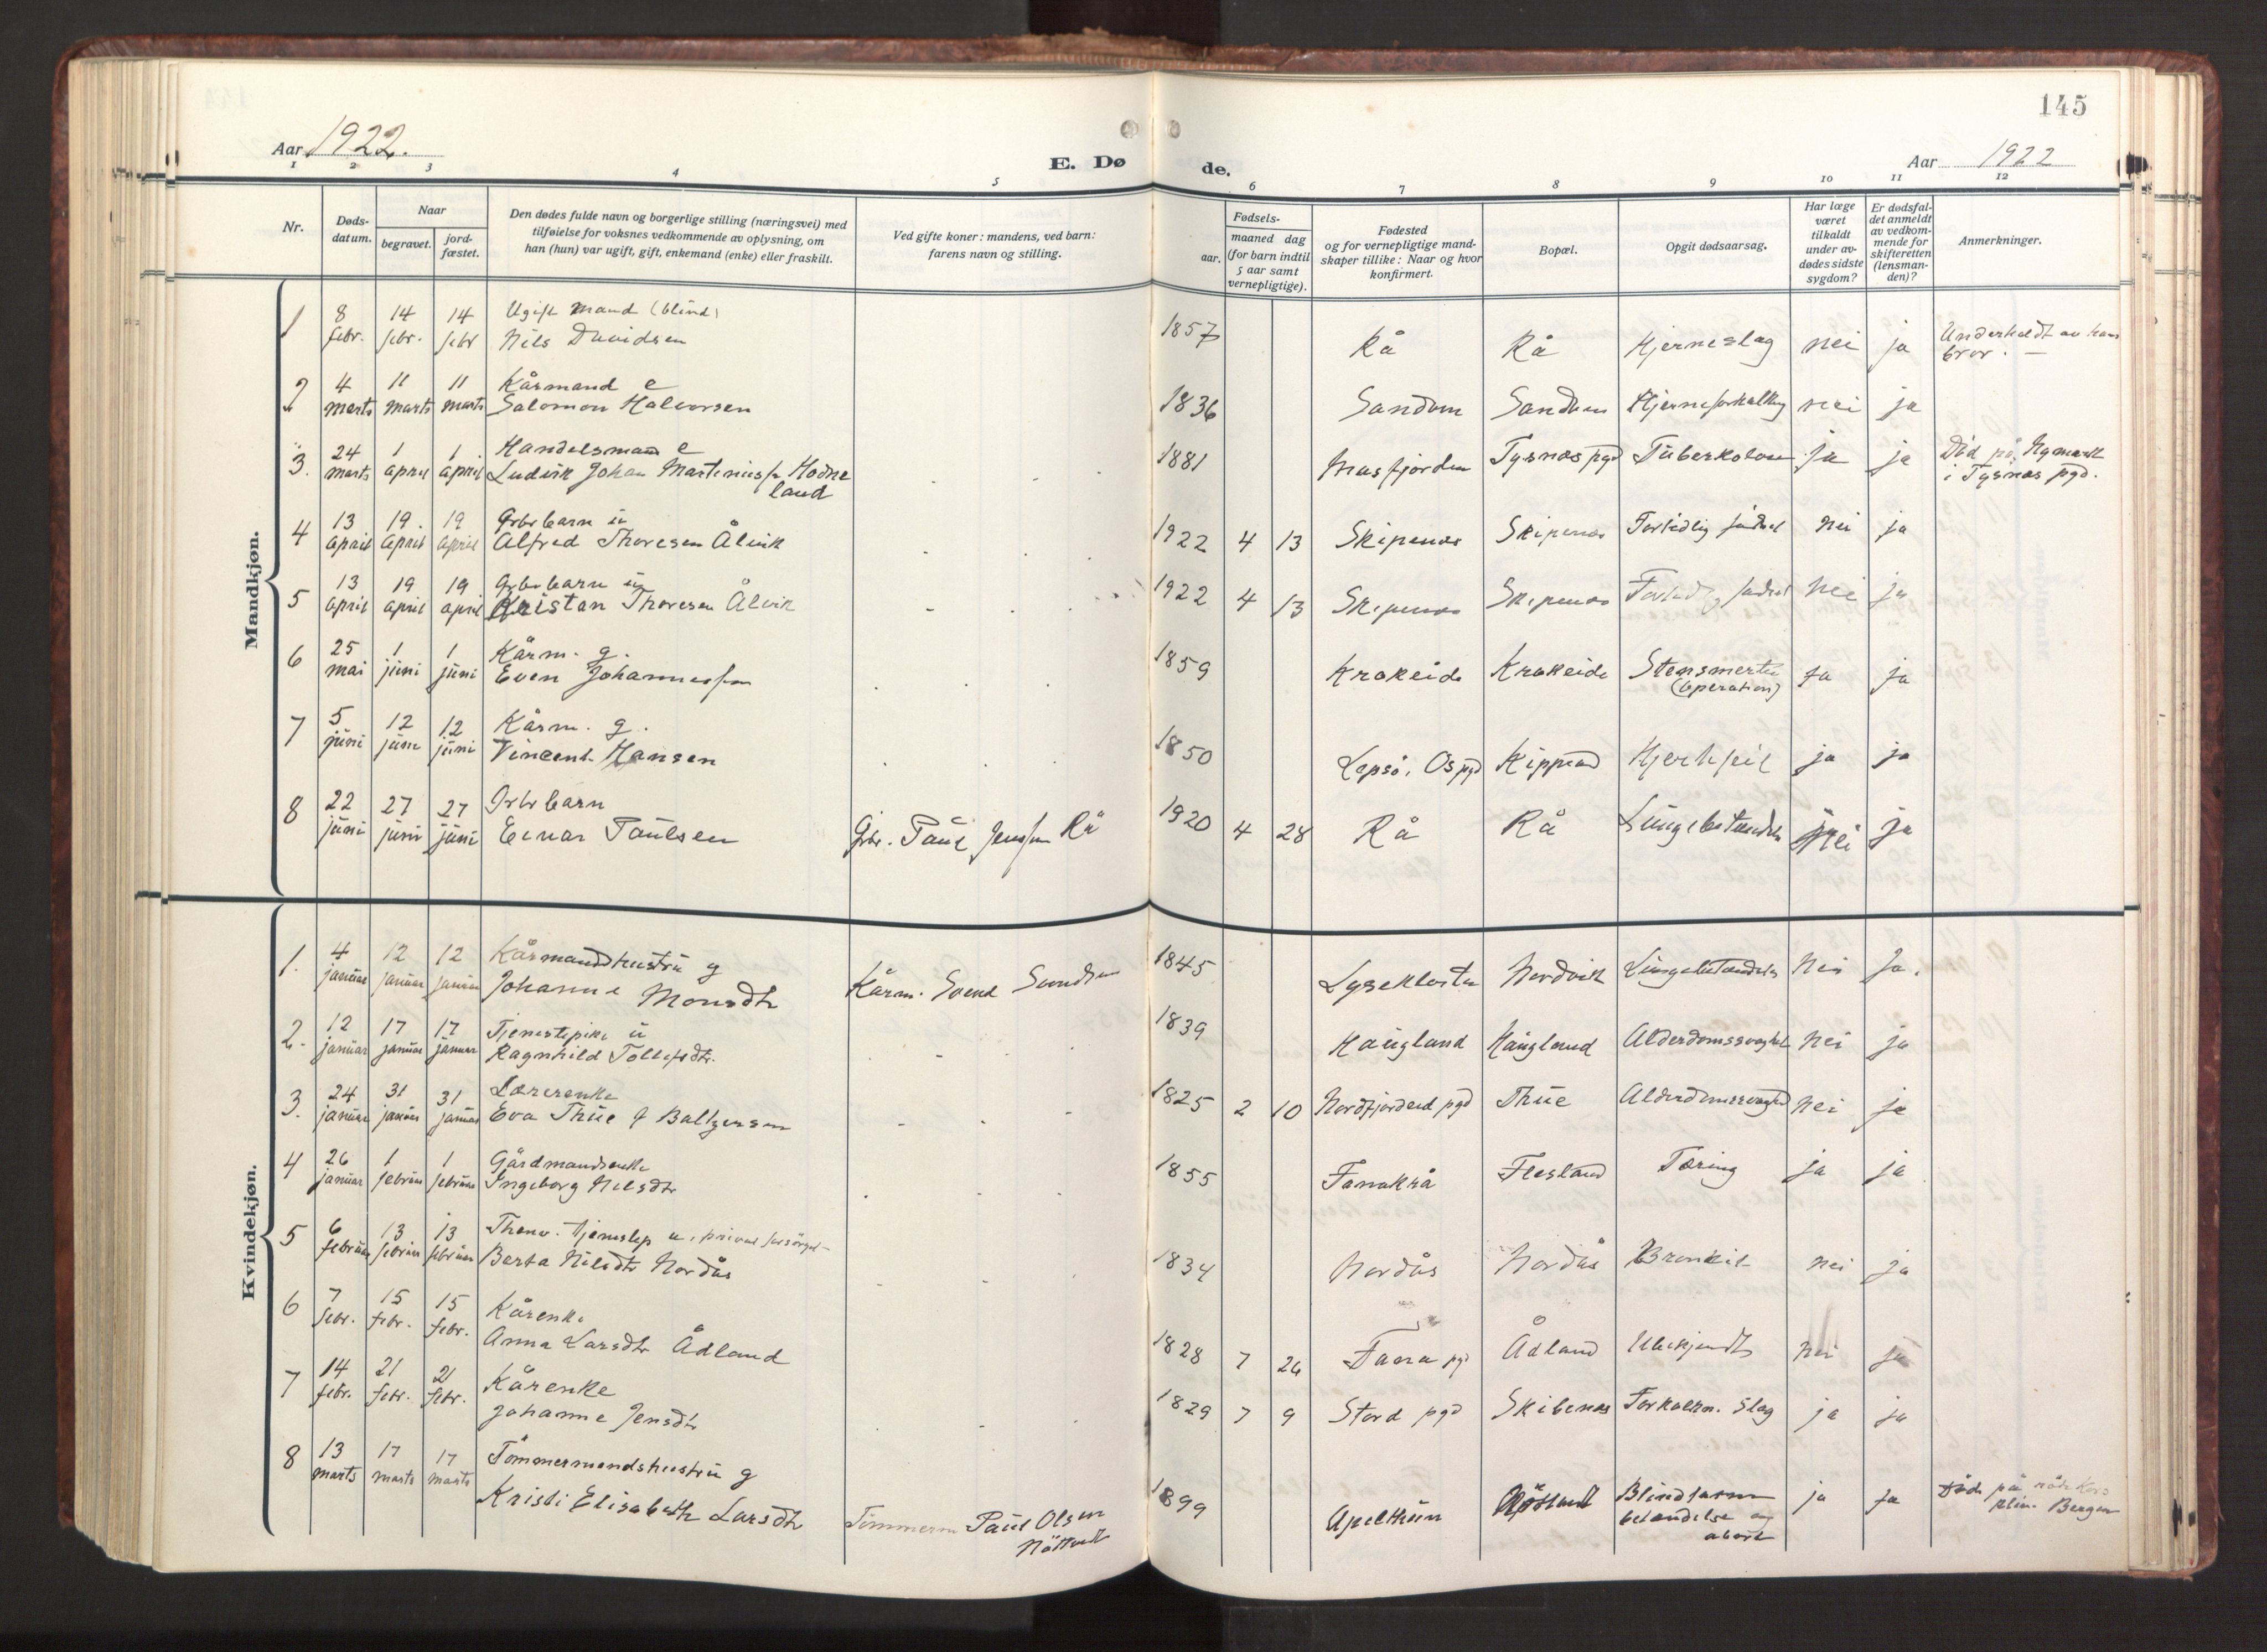 145
Aar 1922.
E. Dø de.
Aar 1922
1 2 3 4 5 6 7 8 9 10 11 12
Nr.
Døds-
datum.
Naar
begravet.
jord-
fæstet.
Den dødes fulde navn og borgerlige stilling (næringsvei) med
tilføielse for voksnes vedkommende av oplysning, om
han (hun) var ugift, gift, enkemand (enke) eller fraskilt.
Ved gifte koner: mandens, ved barn:
farens navn og stilling.
Fødsels-
aar.
maaned dag
(for barn indtil
5 aar samt
vernepligtige).
Fødested
og for vernepligtige mand-
skaper tillike: Naar og hvor
konfirmert.
Bopæl.
Opgit dødsaarsag.
Har læge
været
tilkaldt
under av-
dødes sidste
sygdom?
Er dødsfal-
det anmeldt
av vedkom-
mende for
skifteretten
(lensman-
den)?
Anmerkninger.
Mandkjøn.
1 8 14 14 Ugift mand (blind) 1857 Underholdt av hans
febr. febr. febr Nils Davidsen Rå Rå Hjerneslag nei ja bror. —
2 4 11 11 Kårmand e 1836
marts marts marts Salomon Halvorsen Sandven Sandven Hjerneforkalkning nei ja
3. 24 1 1 Handelsmand e 1881 Masfjorden Tysnæs pgd Tuberkolose ja ja Død på Nymark
marts april april Ludvik Johan Martinius Hodne i Tysnæs pgd.
land
4 13 19. 19 Grbr barn u 1922 4 13 Skipenæs Skipenæs Fortidlig fødsel nei ja
april april april Alfred Thoresen Ålvik
5 13 19 19 Grbr barn u 1922 4 13 Skipenæs Skipenæs Fortidlig fødsel nei ja
april april april Kristan Thoresen Ålvik
6 25 1 1 Kårm. g. 1859 Krokeide Krokeide Stensmerter ja ja
mai juni juni Even Johannessen (operation)
7 5 12 12 Kårm. g. 1850 Lepsö, Os pgd Kippersund Hjertefeil ja ja
juni juni juni Vincent Hansen
8 22 27 27 Grbr barn 1920 4 28 Rå Rå Lungebetændelse nei ja
juni juni juni Einar Paulsen Grbr. Paul Jenssen Rå
Kvindekjøn.
1. 4 12 12 Kårmandhustru g 1845
januar januar januar Johanne Monsdtr Kårm. Svend Svendsen Lysekloster Nordvik Lungebetændelse nei ja.
2. 12 17 17 Tjenestepike u 1839
januar januar januar Ragnhild Tollefsdtr. Haugland Haugland Alderdomssvaghet nei ja
3. 24 31 31 Lærerenke 1825 2 10 Nordfjordeid pgd Thue Alderdomssvaghed nei ja
januar januar januar Eva Thue f Baltzersen
4 26 1 1 Gårdmandsenke 1855 Fanahrå Flesland Tæring ja ja
januar februar februar Ingeborg Nilsdtr
5 6 13 13 Tjenestep u. privat forsörget 1834
februar februar februar Berta Nilsdtr Nordås Nordås Nordås Bronkit nei ja
6 7 15 15 Kårenke 1828 7 26 Fana pgd Ådland Ubekjendt nei ja
febr. febr. febr. Anna Larsdtr Ådland
7 14 21 21 Kårenke 1829 7 9 Stord pgd Skibenes Forkalkn. Slag ja ja
febr. febr. febr. Johanne Jensdtr
8 13 17 17 Tömmermandshustru g 1899 Apelthun Nöttveit Blindtarm ja ja Död på röde Kors
marts marts marts Kristi Elisabeth Larsdtr Tömmerm Paul Olsen betændelse og klin. Bergen
Nöttveit abort